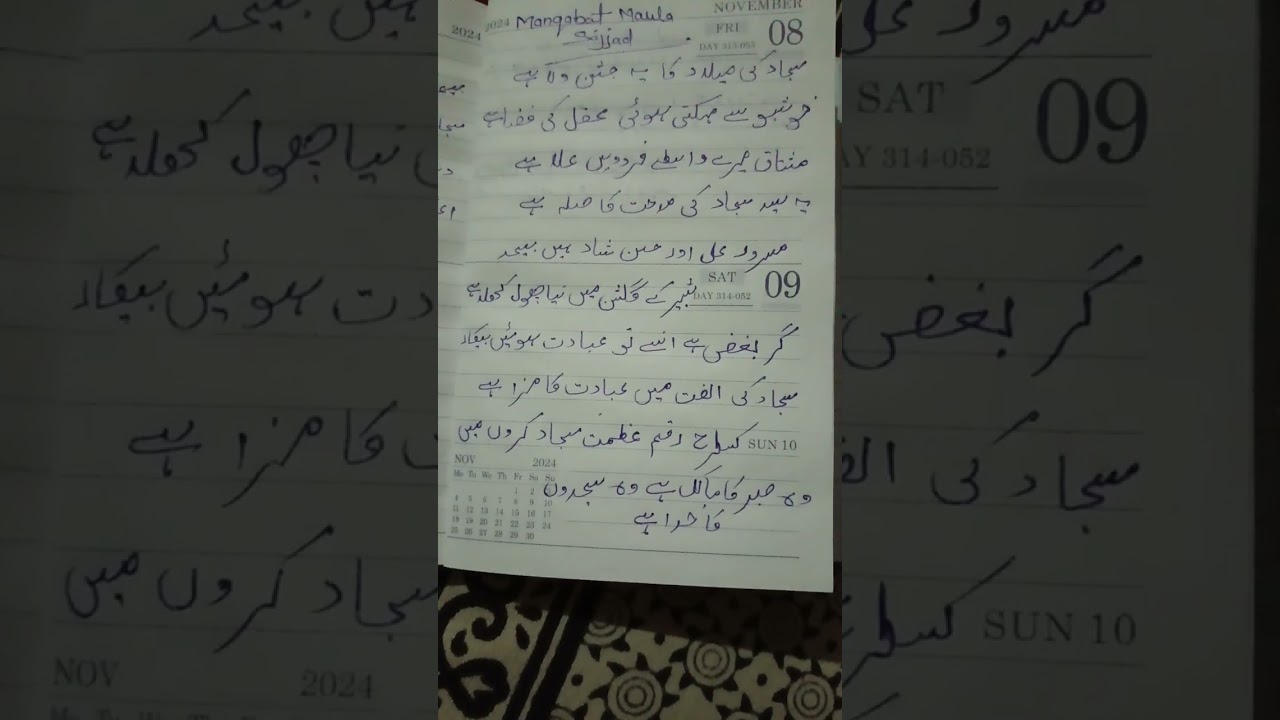 2024 Manqabat Maula
Sajjad
NOVEMBER
FRI
08
DAY 313-053
سجاد کی میلاد کا یہ جشن ولا ہے
خوشبو سے مہکتی ہوئی محفل کی فضا ہے
مشتاق میرے واسطے فردوس علا ہے
یہ سید سجاد کی مدحت کا صلہ ہے
مسرور علی اور حسن شاد ہیں بیحد
SAT
09
DAY 314-052
شبیر کے گلشن میں نیا پھول کھلا ہے
گر بغض ہے انسے تو عبادت ہوئیں بیکار
سجاد کی الفت میں عبادت کا مزا ہے
کسطرح رقم عظمت سجاد کروں میں
SUN 10
وہ صبر کا مالک ہے وہ سجدوں
کا خدا ہے
NOV 2024
Mo Tu We Th Fr Sa Su
1 2 3
4 5 6 7 8 9 10
11 12 13 14 15 16 17
18 19 20 21 22 23 24
25 26 27 28 29 30